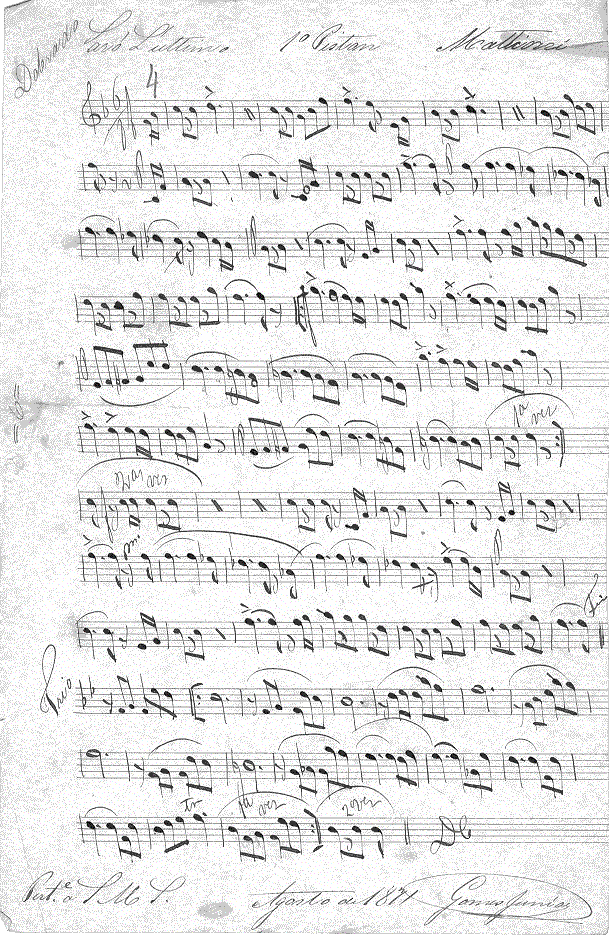 Dobrado
Sará L'ultimo 1º Pistan Matticosi
4
1ª vez
2ª vez
Fim
Trio
tr
1ª vez 2 vez
DC
Pert.e a S M S. Agosto de 18 Gomes Junior